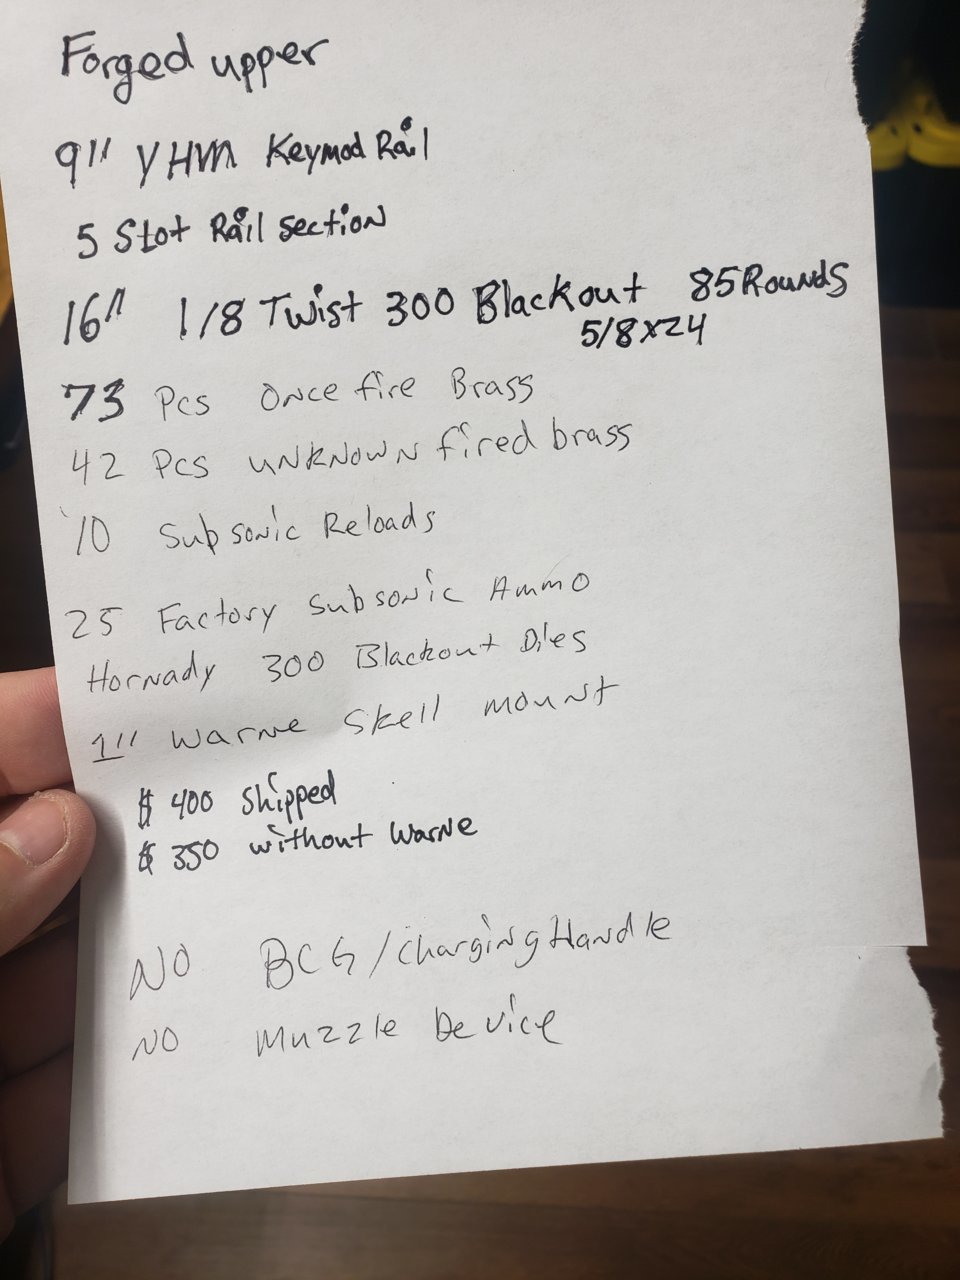 Forged upper
9" YHM Keymod Rail
5 Slot Rail section
16" 1/8 Twist 300 Blackout 85 Rounds
5/8x24
73 Pcs Once fire Brass
42 Pcs unknown fired brass
10 Subsonic Reloads
25 Factory Subsonic Ammo
Hornady 300 Blackout Dies
1" Warne Skell mount
$ 400 Shipped
$ 350 without Warne
NO BCG/Charging Handle
NO Muzzle Device